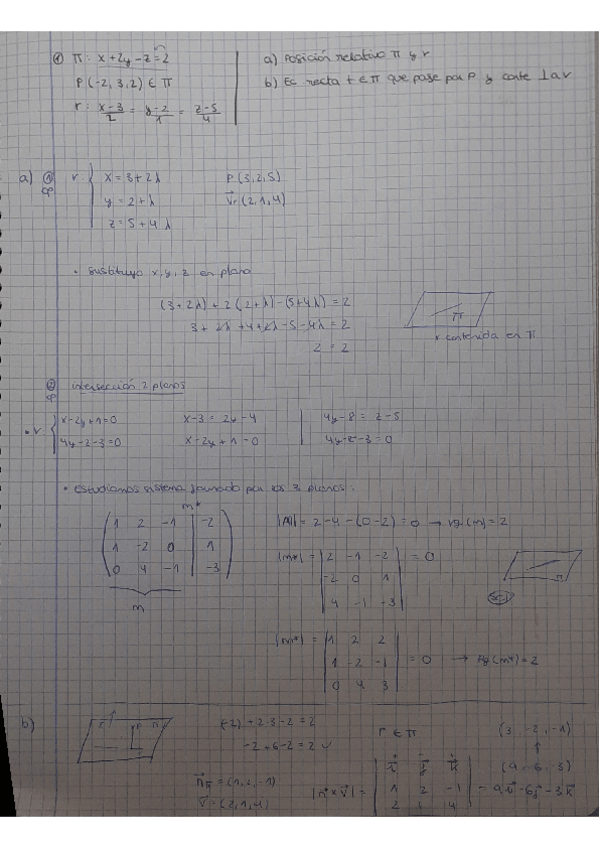 ① π: x+2y-z=2
P(-2,3,2) ∈ π
r: x-3/2 = y-2/1 = z-5/4
a) Posición relativa π y r
b) Ec recta t ∈ π que pase por P y corte ⊥ a r
a) ① r { x = 3+2λ
y = 2+λ
z = 5+4λ
P(3,2,5)
Vr(2,1,4)
• sustituyo x,y,z en plano
(3+2λ)+2(2+λ)-(5+4λ)=2
3+2λ+4+2λ-5-4λ=2
2=2
π
r contenida en π
② intersección 2 planos
• r { x-2y+1=0 x-3=2y-4 | 4y-8=z-5
4y-z-3=0 x-2y+1=0 4y-z-3=0
• estudiamos sistema formado por los 3 planos:
m*
( 1 2 -1 | -2 )
( 1 -2 0 | 1 )
( 0 4 -1 | -3 )
m
|A|= 2-4-(0-2)=0 → rg(m)=2
|m*| = | 2 -1 -2 | = 0
| -2 0 1 |
| 4 -1 -3 |
π
|m*| = | 1 2 2 |
| 1 -2 -1 | = 0 → rg(m*)=2
| 0 4 3 |
b)
(-2)+2·3-2=2
-2+6-2=2 ✓
nπ = (1,2,-1)
v = (2,1,4)
r ∈ π
(3,-2,-1)
↑
(9,-6,-3)
|n×v| = | i j k |
| 1 2 -1 | = 9i-6j-3k
| 2 1 4 |